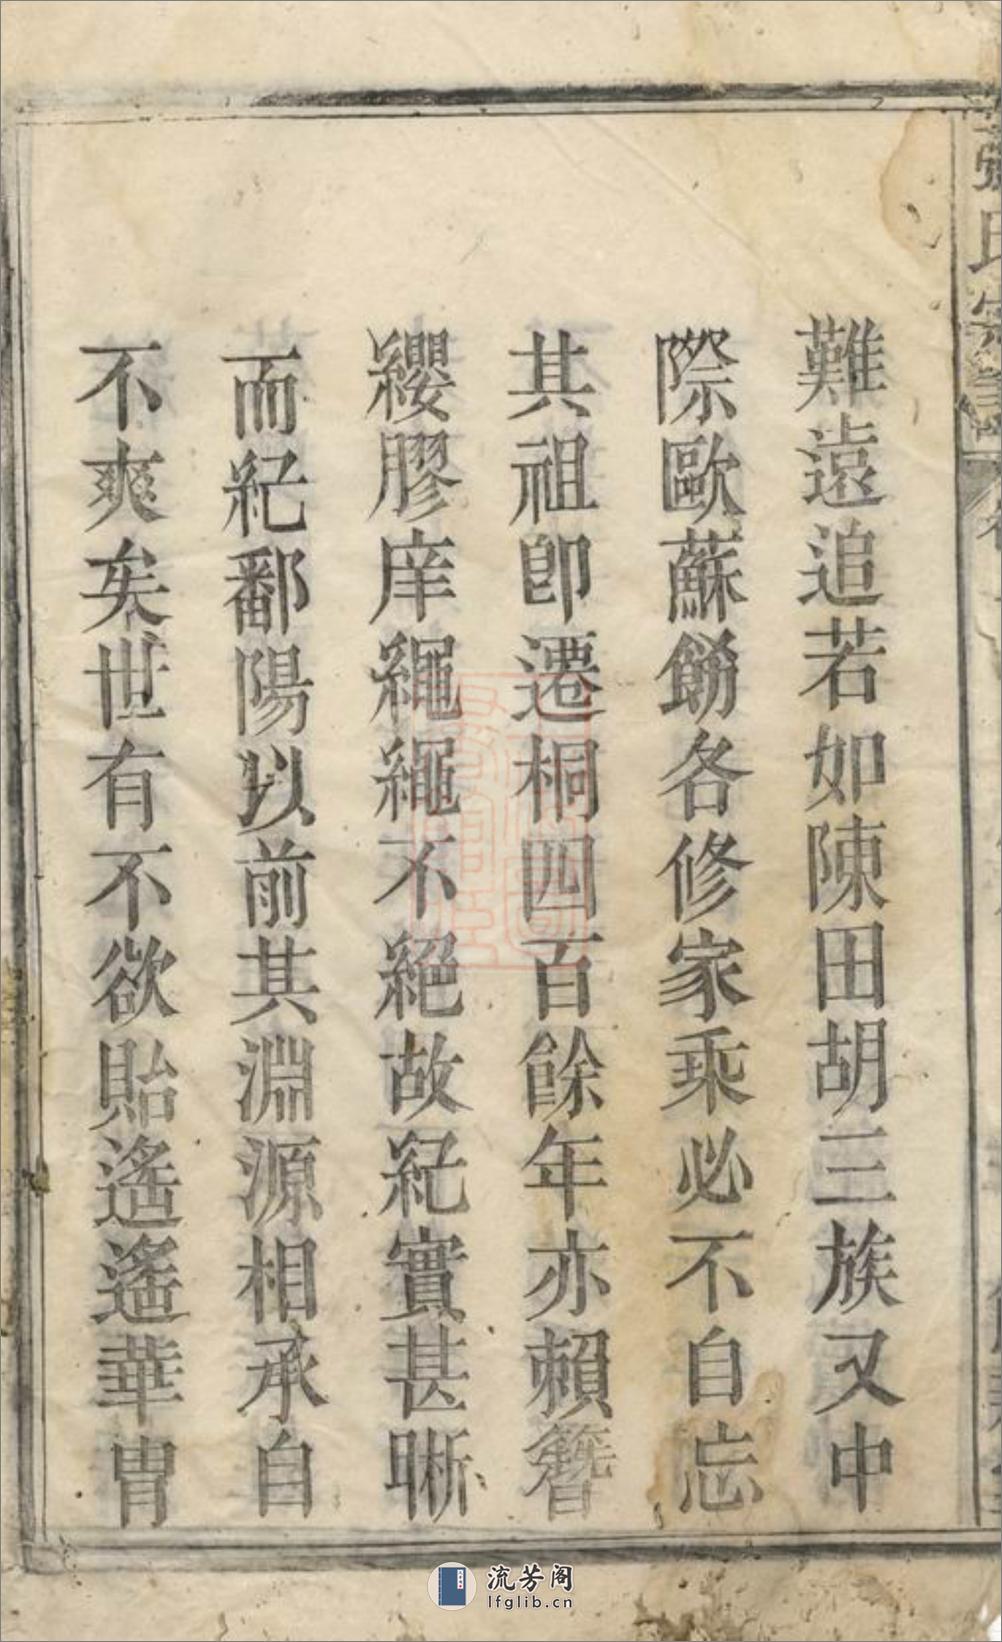 難遠追若如陳田胡三族又中
際歐蘇餝各修家乘必不自忘
其祖卽遷桐四百餘年亦賴簪
纓膠庠繩繩不絕故紀實甚晰
而紀鄱陽以前其淵源相承自
不爽矣世有不欲貽遙遙華冑
張氏宗譜
流芳阁
lfglib.cn